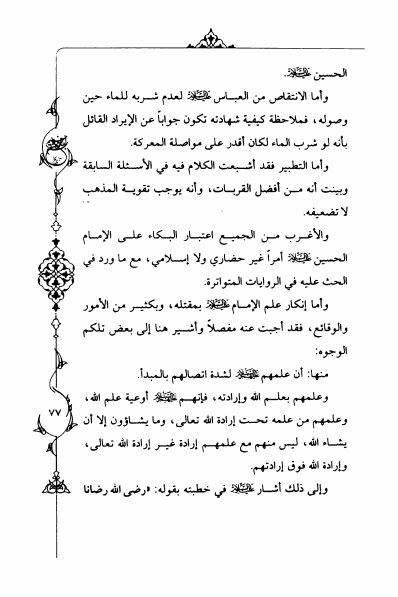 الحسين عليه السلام.
وأما الانتقاص من العباس عليه السلام لعدم شربه للماء حين
وصوله، فملاحظة كيفية شهادته تكون جواباً عن الإيراد القائل
بأنه لو شرب الماء لكان أقدر على مواصلة المعركة.
وأما التطبير فقد أشبعت الكلام فيه في الأسئلة السابقة
وبينت أنه من أفضل القربات، وأنه يوجب تقوية المذهب
لا تضعيفه.
والأغرب من الجميع اعتبار البكاء على الإمام
الحسين عليه السلام أمراً غير حضاري ولا إسلامي، مع ما ورد في
الحث عليه في الروايات المتواترة.
وأما إنكار علم الإمام عليه السلام بمقتله، وبكثير من الأمور
والوقائع، فقد أجبت عنه مفصلاً وأشير هنا إلى بعض تلكم
الوجوه:
منها: أن علمهم عليهم السلام لشدة اتصالهم بالمبدأ.
وعلمهم بعلم الله وإرادته، فإنهم عليهم السلام أوعية علم الله،
وعلمهم من علمه تحت إرادة الله تعالى، وما يشاؤون إلا أن
يشاء الله، ليس منهم مع علمهم إرادة غير إرادة الله تعالى،
وإرادة الله فوق إرادتهم.
وإلى ذلك أشار عليه السلام في خطبته بقوله: «رضى الله رضانا
٧٧